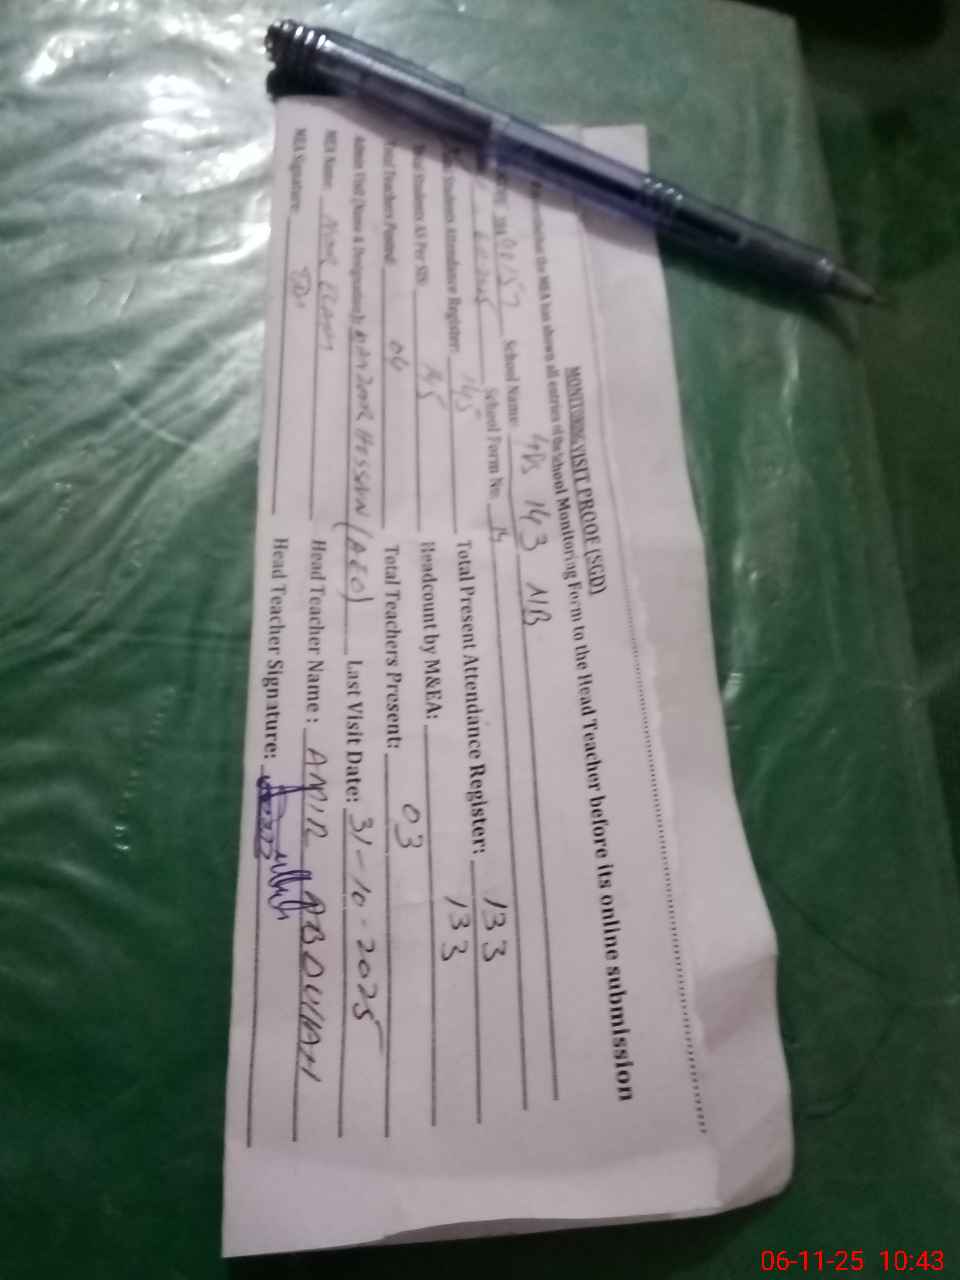 MONITORING VISIT PROOF (SGD)
the MEA has shown all entries of the School Monitoring Form to the Head Teacher before its online submission
School Name: GPS 143 NB
School Form No. 14
Students Attendance Register: 145 Total Present Attendance Register: 133
Total Students AS Per SIS: 145 Headcount by M&EA: 133
Total Teachers Posted: 04 Total Teachers Present: 03
Admin Visit (Name & Designation): HUSSAIN (AEO) Last Visit Date: 31-10-2025
MEA Name: Head Teacher Name: AMIR ABDULLAH
MEA Signature: Head Teacher Signature:
06-11-25 10:43